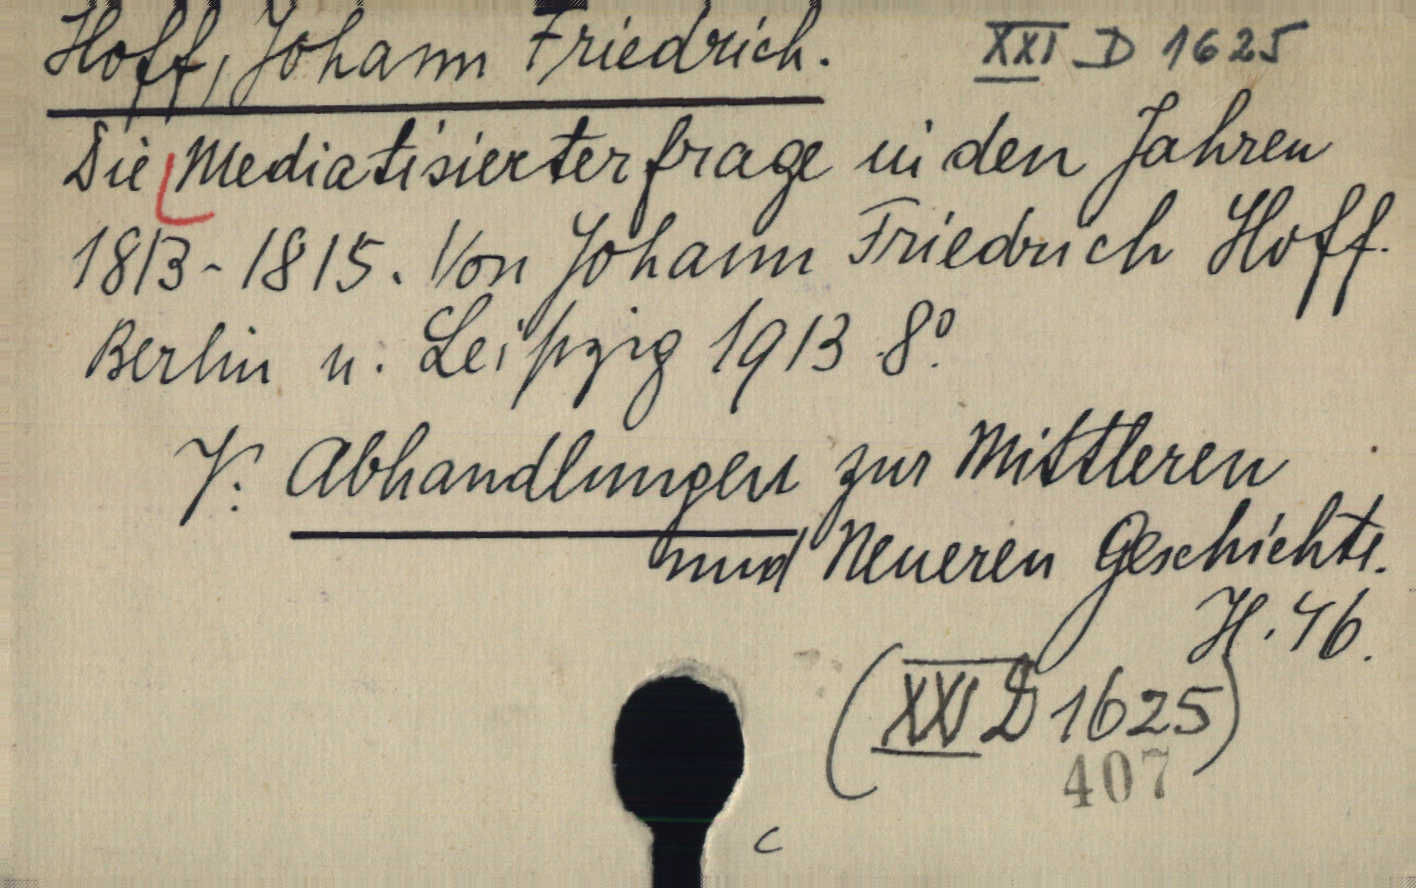 Hoff, Johann Friedrich. XXI D 1625
Die Mediatisiertenfrage in den Jahren
1813-1815. Von Johann Friedrich Hoff.
Berlin u. Leipzig 1913 8°.
V: Abhandlungen zur Mittleren
und Neueren Geschichte.
H. 46.
(XXI D 1625)
407
c